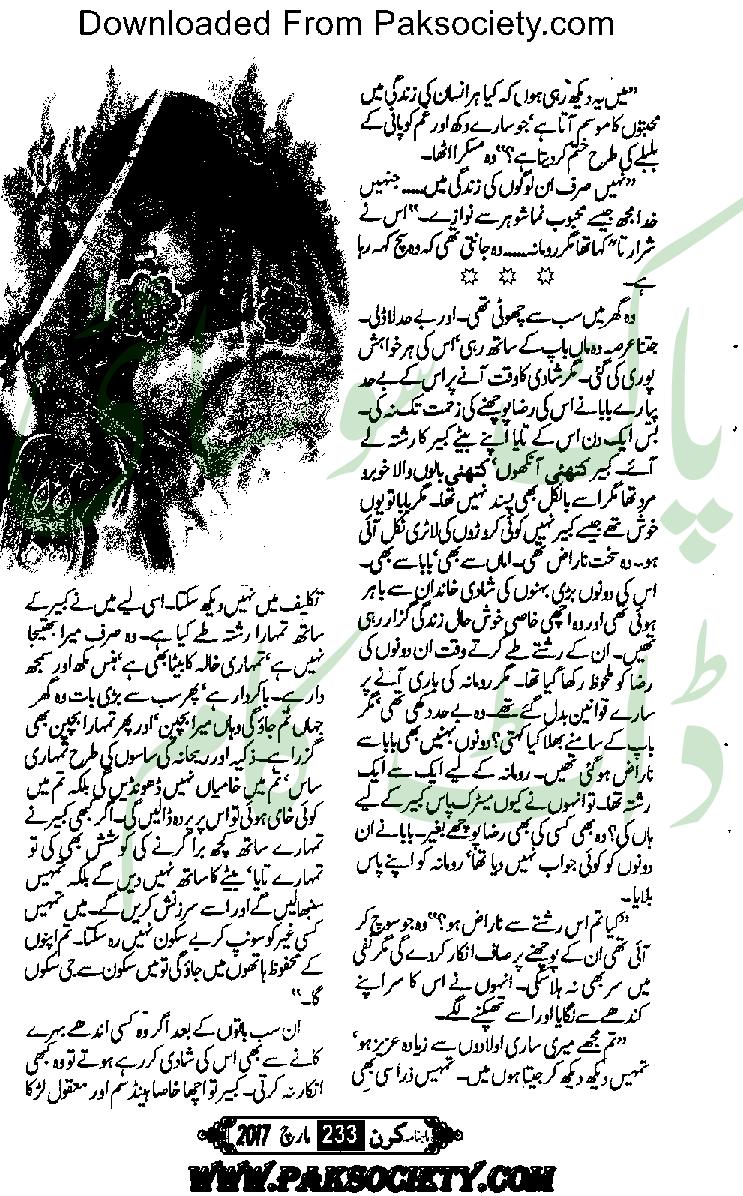 Downloaded From Paksociety.com
”میں یہ دیکھ رہی ہوں کہ کیا ہر انسان کی زندگی میں
محبتوں کا موسم آتا ہے‘ جو سارے دکھ اور غم کو پانی کے
بلبلے کی طرح ختم کر دیتا ہے؟“ وہ مسکرا اٹھا۔
”نہیں صرف ان لوگوں کی زندگی میں..... جنہیں
خدا مجھ جیسے محبوب نما شوہر سے نوازے۔“ اس نے
شرارتا“ کہا تھا مگر رومانہ..... وہ جانتی تھی کہ وہ سچ کہہ رہا
ہے۔
☼ ☼ ☼
وہ گھر میں سب سے چھوٹی تھی۔ اور بے حد لاڈلی۔
جتنا عرصہ وہ ماں باپ کے ساتھ رہی‘ اس کی ہر خواہش
پوری کی گئی۔ مگر شادی کا وقت آنے پر اس کے بے حد
پیارے بابا نے اس کی رضا پوچھنے کی زحمت تک نہ کی۔
بس ایک دن اس کے تایا اپنے بیٹے کبیر کا رشتہ لے
آئے۔ کبیر کتھئی آنکھوں‘ کتھئی بالوں والا خوبرو
مرد تھا مگر اسے بالکل بھی پسند نہیں تھا۔ مگر بابا تو یوں
خوش تھے جیسے کبیر نہیں کوئی کروڑوں کی لاٹری نکل آئی
ہو۔ وہ سخت ناراض تھی۔ اماں سے بھی‘ بابا سے بھی۔
اس کی دونوں بڑی بہنوں کی شادی خاندان سے باہر
ہوئی تھی اور وہ اچھی خاصی خوش حال زندگی گزار رہی
تھیں۔ ان کے رشتے طے کرتے وقت ان دونوں کی
رضا کو ملحوظ رکھا گیا تھا۔ مگر رومانہ کی باری آنے پر
سارے قوانین بدل گئے تھے۔ وہ بے حد دکھی تھی‘ مگر
باپ کے سامنے بھلا کیا کہتی؟ دونوں بہنیں بھی بابا سے
ناراض ہو گئی تھیں۔ رومانہ کے لیے ایک سے ایک
رشتہ تھا۔ تو انہوں نے کیوں میٹرک پاس کبیر کے لیے
ہاں کی؟ وہ بھی کسی کی بھی رضا پوچھے بغیر۔ بابا نے ان
دونوں کو کوئی جواب نہیں دیا تھا‘ رومانہ کو اپنے پاس
بلایا۔
”کیا تم اس رشتے سے ناراض ہو؟“ وہ جو سوچ کر
آئی تھی ان کے پوچھنے پر صاف انکار کر دے گی مگر نفی
میں سر بھی نہ ہلا سکی۔ انہوں نے اس کا سر اپنے
کندھے سے لگایا اور اسے تھپکنے لگے۔
”تم مجھے میری ساری اولادوں سے زیادہ عزیز ہو‘
تمہیں دیکھ دیکھ کر جیتا ہوں میں۔ تمہیں ذرا سی بھی
تکلیف میں نہیں دیکھ سکتا۔ اسی لیے میں نے کبیر کے
ساتھ تمہارا رشتہ طے کیا ہے۔ وہ صرف میرا بھتیجا
نہیں ہے‘ تمہاری خالہ کا بیٹا بھی ہے‘ ہنس مکھ اور سمجھ
دار ہے۔ باکردار ہے‘ پھر سب سے بڑی بات وہ گھر
جہاں تم جاؤ گی وہاں میرا بچپن‘ اور پھر تمہارا بچپن بھی
گزرا ہے۔ ذکیہ اور ریحانہ کی ساسوں کی طرح تمہاری
ساس‘ تم میں خامیاں نہیں ڈھونڈیں گی بلکہ تم میں
کوئی خامی ہوئی تو اس پر پردہ ڈالیں گی۔ اگر کبھی کبیر نے
تمہارے ساتھ کچھ برا کرنے کی کوشش بھی کی تو
تمہارے تایا‘ بیٹے کا ساتھ نہیں دیں گے بلکہ تمہیں
سنبھالیں گے اور اسے سرزنش کریں گے۔ میں تمہیں
کسی غیر کو سونپ کر بے سکون نہیں رہ سکتا۔ تم اپنوں
کے محفوظ ہاتھوں میں جاؤ گی تو میں سکون سے جی سکوں
گا۔“
ان سب باتوں کے بعد اگر وہ کسی اندھے بہرے
کانے سے بھی اس کی شادی کر رہے ہوتے تو وہ کبھی
انکار نہ کرتی۔ کبیر تو اچھا خاصا ہینڈسم اور معقول لڑکا
ماہنامہ کرن 233 مارچ 2017
WWW.PAKSOCIETY.COM
پاک سوسائٹی
ڈاٹ کام